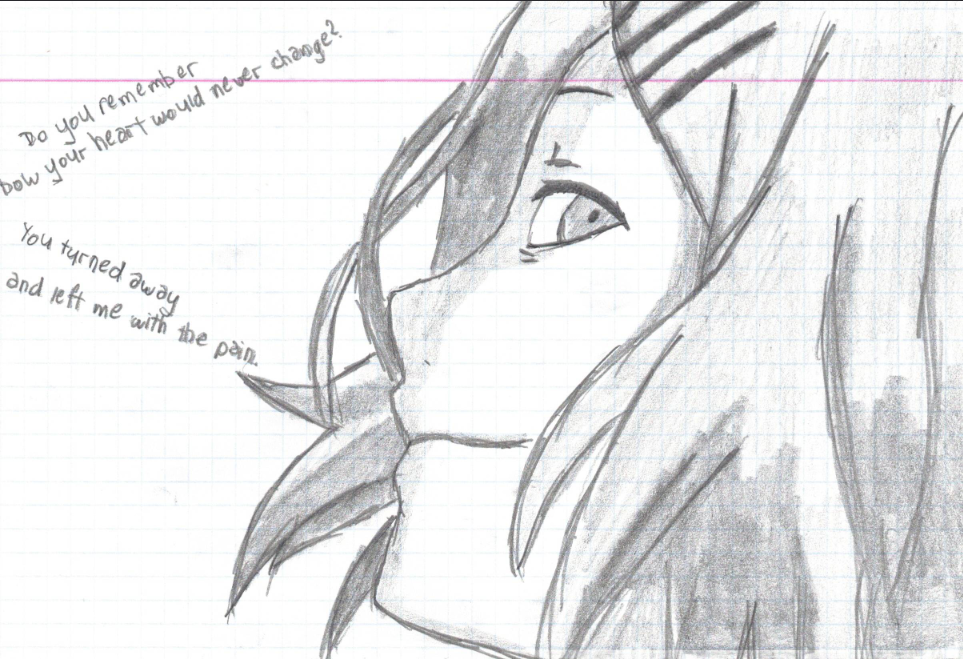 Do you remember
how your heart would never change?
You turned away
and left me with the pain.